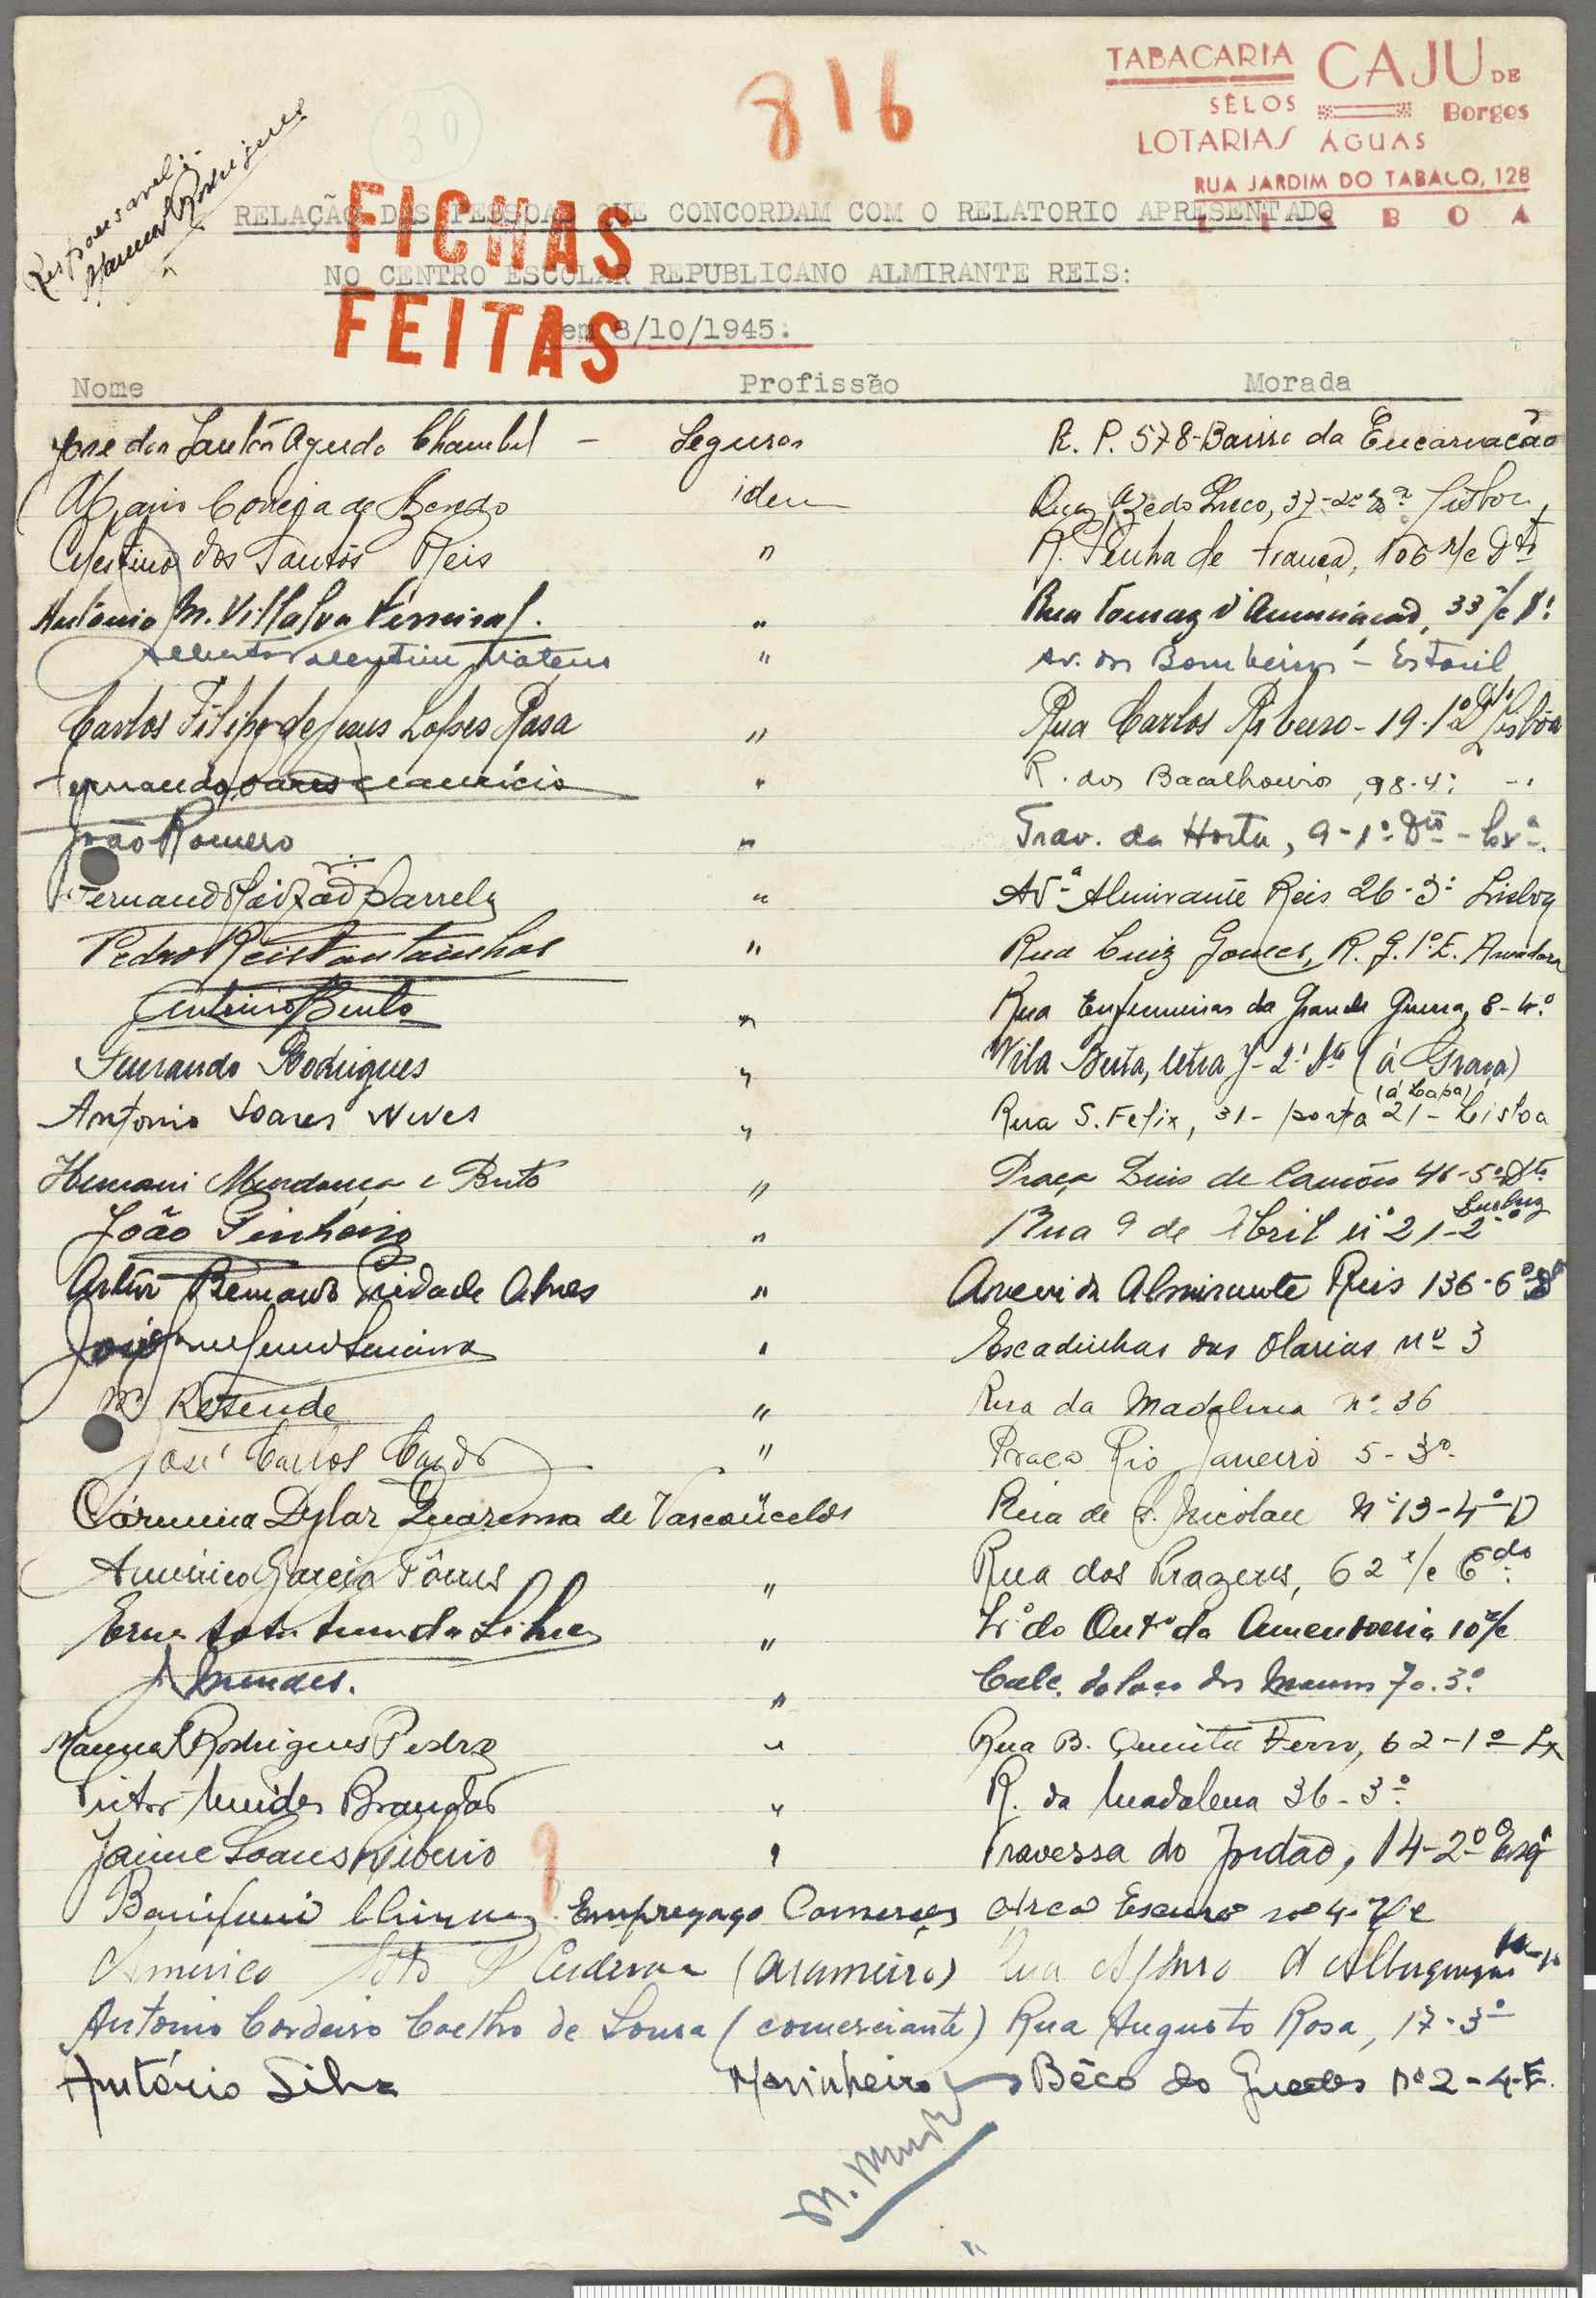 816
TABACARIA CAJU DE
SÊLOS Borges
LOTARIAS ÁGUAS
RUA JARDIM DO TABACO, 128
LISBOA
30
Responsavel:
Manuel Rodrigues
FICHAS
FEITAS
RELAÇÃO DAS PESSOAS QUE CONCORDAM COM O RELATORIO APRESENTADO
NO CENTRO ESCOLAR REPUBLICANO ALMIRANTE REIS:
em 8/10/1945.
Nome Profissão Morada
José dos Santos Agudo Chambel – Seguros R. P. 578-Bairro da Encarnação
Mario Correja de Azevedo idem Rua Azedo Gneco, 37-2º Lisboa
Celestino dos Santos Reis " R. Penha de França, 106 r/c Dto
António M. Villalva " Rua Tomaz d'Anunciação, 33 r/c
Alberto Valentim Mateus " Av. dos Bombeiros – Estoril
Carlos Filipe de Jesus Lopes Rosa " Rua Carlos Ribeiro - 19-1º Dto Lisbôa
Fernando Soares Mauricio " R. dos Bacalhoeiros, 98-4º
João Romero " Trav. da Horta, 9-1º Dto - Lxa.
Fernando " Avª Almirante Reis 26-3º Lisboa
Pedro Reis Tantainhas " Rua Luiz Gomes, R. G. 1º E. Amadora
Antonio Bento " Rua Enfermeiras da Grande Guerra, 8-4º
Fernando Rodrigues " Vila Berta, letra J-2º Dto (á Graça)
Antonio Soares Neves " Rua S. Felix, 31- porta 21 - Lisboa
(á Lapa)
Hernani Mendonça e Brito " Praça Luis de Camões 46-5º Dto
João Pinheiro " Rua 9 de Abril nº 21-2º
Artur Bernardo Trindade Alves " Avenida Almirante Reis 136-6º
José " Escadinhas das Olarias nº 3
Resende " Rua da Madalena nº 36
José Carlos " Praça Rio Janeiro 5-3º
Cármina Dylar Quaresma de Vasconcelos Rua de S. Nicolau Nº 13-4º D
Américo Garcia Tôrres " Rua dos Prazeres, 62 r/c
da Silva " da Amendoeira 10 r/c
Mendes. " Calc. 70-3º
Manuel Rodrigues Pedro " Rua B. Quinta Ferro, 62-1º Lx
Vitor Mendes Brandão " R. da Madalena 36-3º
Jaime Soares Ribeiro " Travessa do Jordão, 14-2º Esqº
Empregago Comercio Arco Escuro nº 4-
Américo (arameiro) Rua Afonso d'Albuquerque
Antonio Cordeiro Coelho de Sousa (comerciante) Rua Augusto Rosa, 17-3º
António Silva Marinheiro Bêco do Guedes Nº 2-4-E.